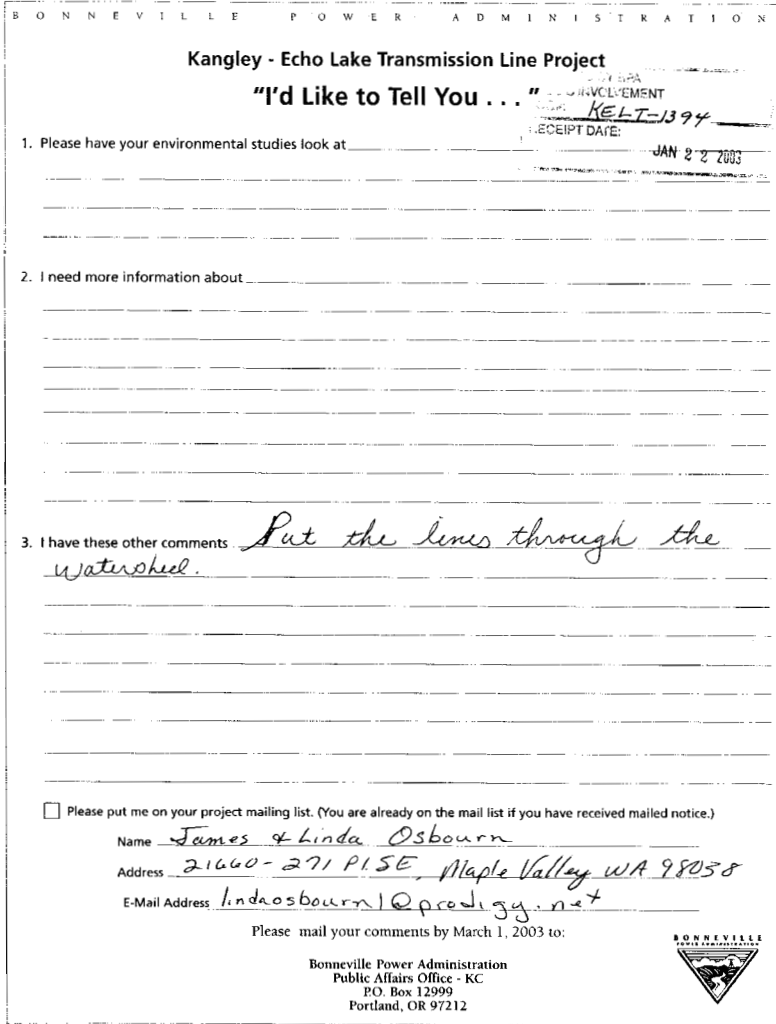 BONNEVILLE POWER ADMINISTRATION
Kangley - Echo Lake Transmission Line Project
"I'd Like to Tell You . . . "
BPA
INVOLVEMENT
KELT-1394
RECEIPT DATE:
JAN 22 2003
1. Please have your environmental studies look at
2. I need more information about
3. I have these other comments Put the lines through the
watershed.
Please put me on your project mailing list. (You are already on the mail list if you have received mailed notice.)
Name James & Linda Osbourn
Address 21660-271 Pl. SE, Maple Valley WA 98038
E-Mail Address lindaosbourn1@prodigy.net
Please mail your comments by March 1, 2003 to:
Bonneville Power Administration
Public Affairs Office - KC
P.O. Box 12999
Portland, OR 97212
BONNEVILLE
POWER ADMINISTRATION